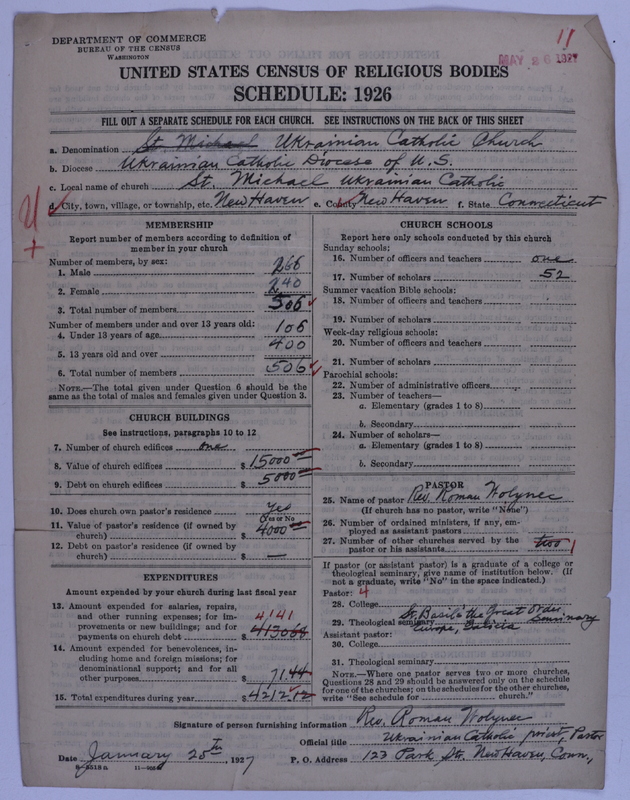 DEPARTMENT OF COMMERCE
BUREAU OF THE CENSUS
WASHINGTON
11
MAY 26 1927
UNITED STATES CENSUS OF RELIGIOUS BODIES
SCHEDULE: 1926
FILL OUT A SEPARATE SCHEDULE FOR EACH CHURCH. SEE INSTRUCTIONS ON THE BACK OF THIS SHEET
a. Denomination St. Michael Ukrainian Catholic Church
b. Diocese Ukrainian Catholic Diocese of U.S.
c. Local name of church St. Michael Ukrainian Catholic
d. City, town, village, or township, etc. New Haven e. County New Haven f. State Connecticut
MEMBERSHIP
Report number of members according to definition of
member in your church
Number of members, by sex:
1. Male 266
2. Female 240
3. Total number of members 506
Number of members under and over 13 years old:
4. Under 13 years of age 106
5. 13 years old and over 400
6. Total number of members 506
NOTE.—The total given under Question 6 should be
same as the total of males and females given under Question 3.
CHURCH BUILDINGS
See instructions, paragraphs 10 to 12
7. Number of church edifices one
8. Value of church edifices $ 15000
9. Debt on church edifices $ 5000
10. Does church own pastor's residence yes
(Yes or No)
11. Value of pastor's residence (if owned by
church) $ 4000
12. Debt on pastor's residence (if owned by
church) $ —
EXPENDITURES
Amount expended by your church during last fiscal year
13. Amount expended for salaries, repairs,
and other running expenses; for im-
provements or new buildings; and for
payments on church debt $ 4141
14. Amount expended for benevolences, in-
cluding home and foreign missions; for
denominational support; and for all
other purposes $ 71.44
15. Total expenditures during year $ 4212.12
CHURCH SCHOOLS
Report here only schools conducted by this church
Sunday schools:
16. Number of officers and teachers one
17. Number of scholars 52
Summer vacation Bible schools:
18. Number of officers and teachers
19. Number of scholars
Week-day religious schools:
20. Number of officers and teachers
21. Number of scholars
Parochial schools:
22. Number of administrative officers
23. Number of teachers—
a. Elementary (grades 1 to 8)
b. Secondary
24. Number of scholars—
a. Elementary (grades 1 to 8)
b. Secondary
PASTOR
25. Name of pastor Rev. Roman Wolynec
(If church has no pastor, write "None")
26. Number of ordained ministers, if any, em-
ployed as assistant pastors
27. Number of other churches served by the
pastor or his assistants two 1
If pastor (or assistant pastor) is a graduate of a college or
theological seminary, give name of institution below. (If
not a graduate, write "No" in the space indicated.)
Pastor: 4
28. College
29. Theological seminary St. Basil the Great Order Seminary
Europe, Galicia
Assistant pastor:
30. College
31. Theological seminary
NOTE.—Where one pastor serves two or more churches,
Questions 28 and 29 should be answered only on the schedule
for one of the churches; on the schedules for the other churches,
write "See schedule for church."
Signature of person furnishing information Rev. Roman Wolynec
Official title Ukrainian Catholic priest, Pastor
Date January 25th, 1927 P. O. Address 123 Park Str. New Haven, Conn.,